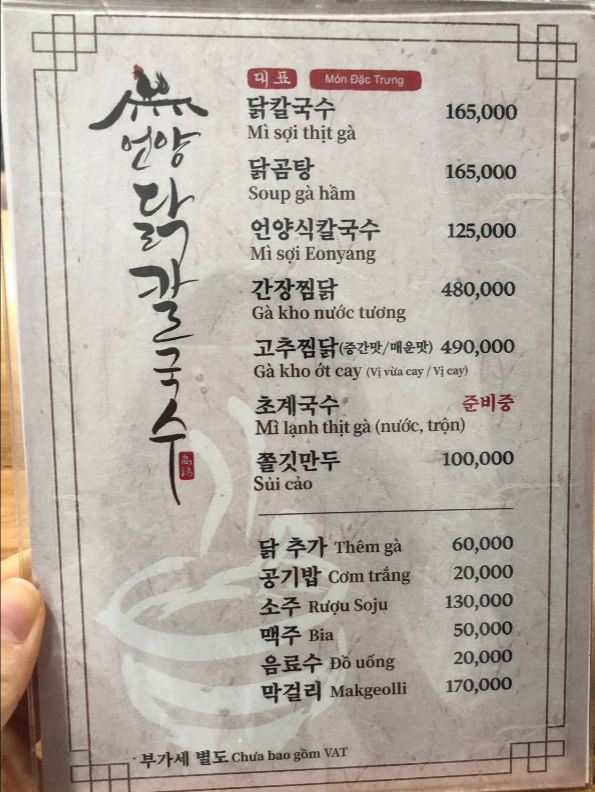 언양
닭칼국수
대표 Món Đặc Trưng
닭칼국수 165,000
Mì sợi thịt gà
닭곰탕 165,000
Soup gà hầm
언양식칼국수 125,000
Mì sợi Eonyang
간장찜닭 480,000
Gà kho nước tương
고추찜닭(중간맛/매운맛) 490,000
Gà kho ớt cay (Vị vừa cay / Vị cay)
초계국수 준비중
Mì lạnh thịt gà (nước, trộn)
쫄깃만두 100,000
Sủi cảo
닭 추가 Thêm gà 60,000
공기밥 Cơm trắng 20,000
소주 Rượu Soju 130,000
맥주 Bia 50,000
음료수 Đồ uống 20,000
막걸리 Makgeolli 170,000
· 부가세 별도 Chưa bao gồm VAT